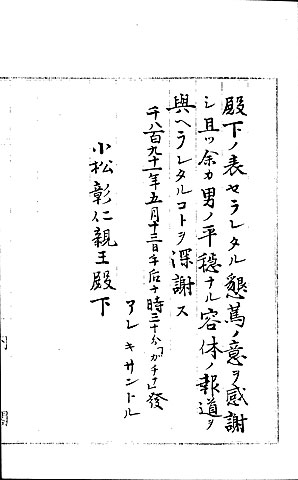 殿下ノ表セラレタル懇篤ノ意ヲ感謝
シ且ツ余カ男ノ平穏ナル容体ノ報道ヲ
與ヘラレタルコトヲ深謝ス
千八百九十一年五月十三日午后十時三十分「ガチナ」發
アレキサンドル
小松彰仁親王殿下
内閣